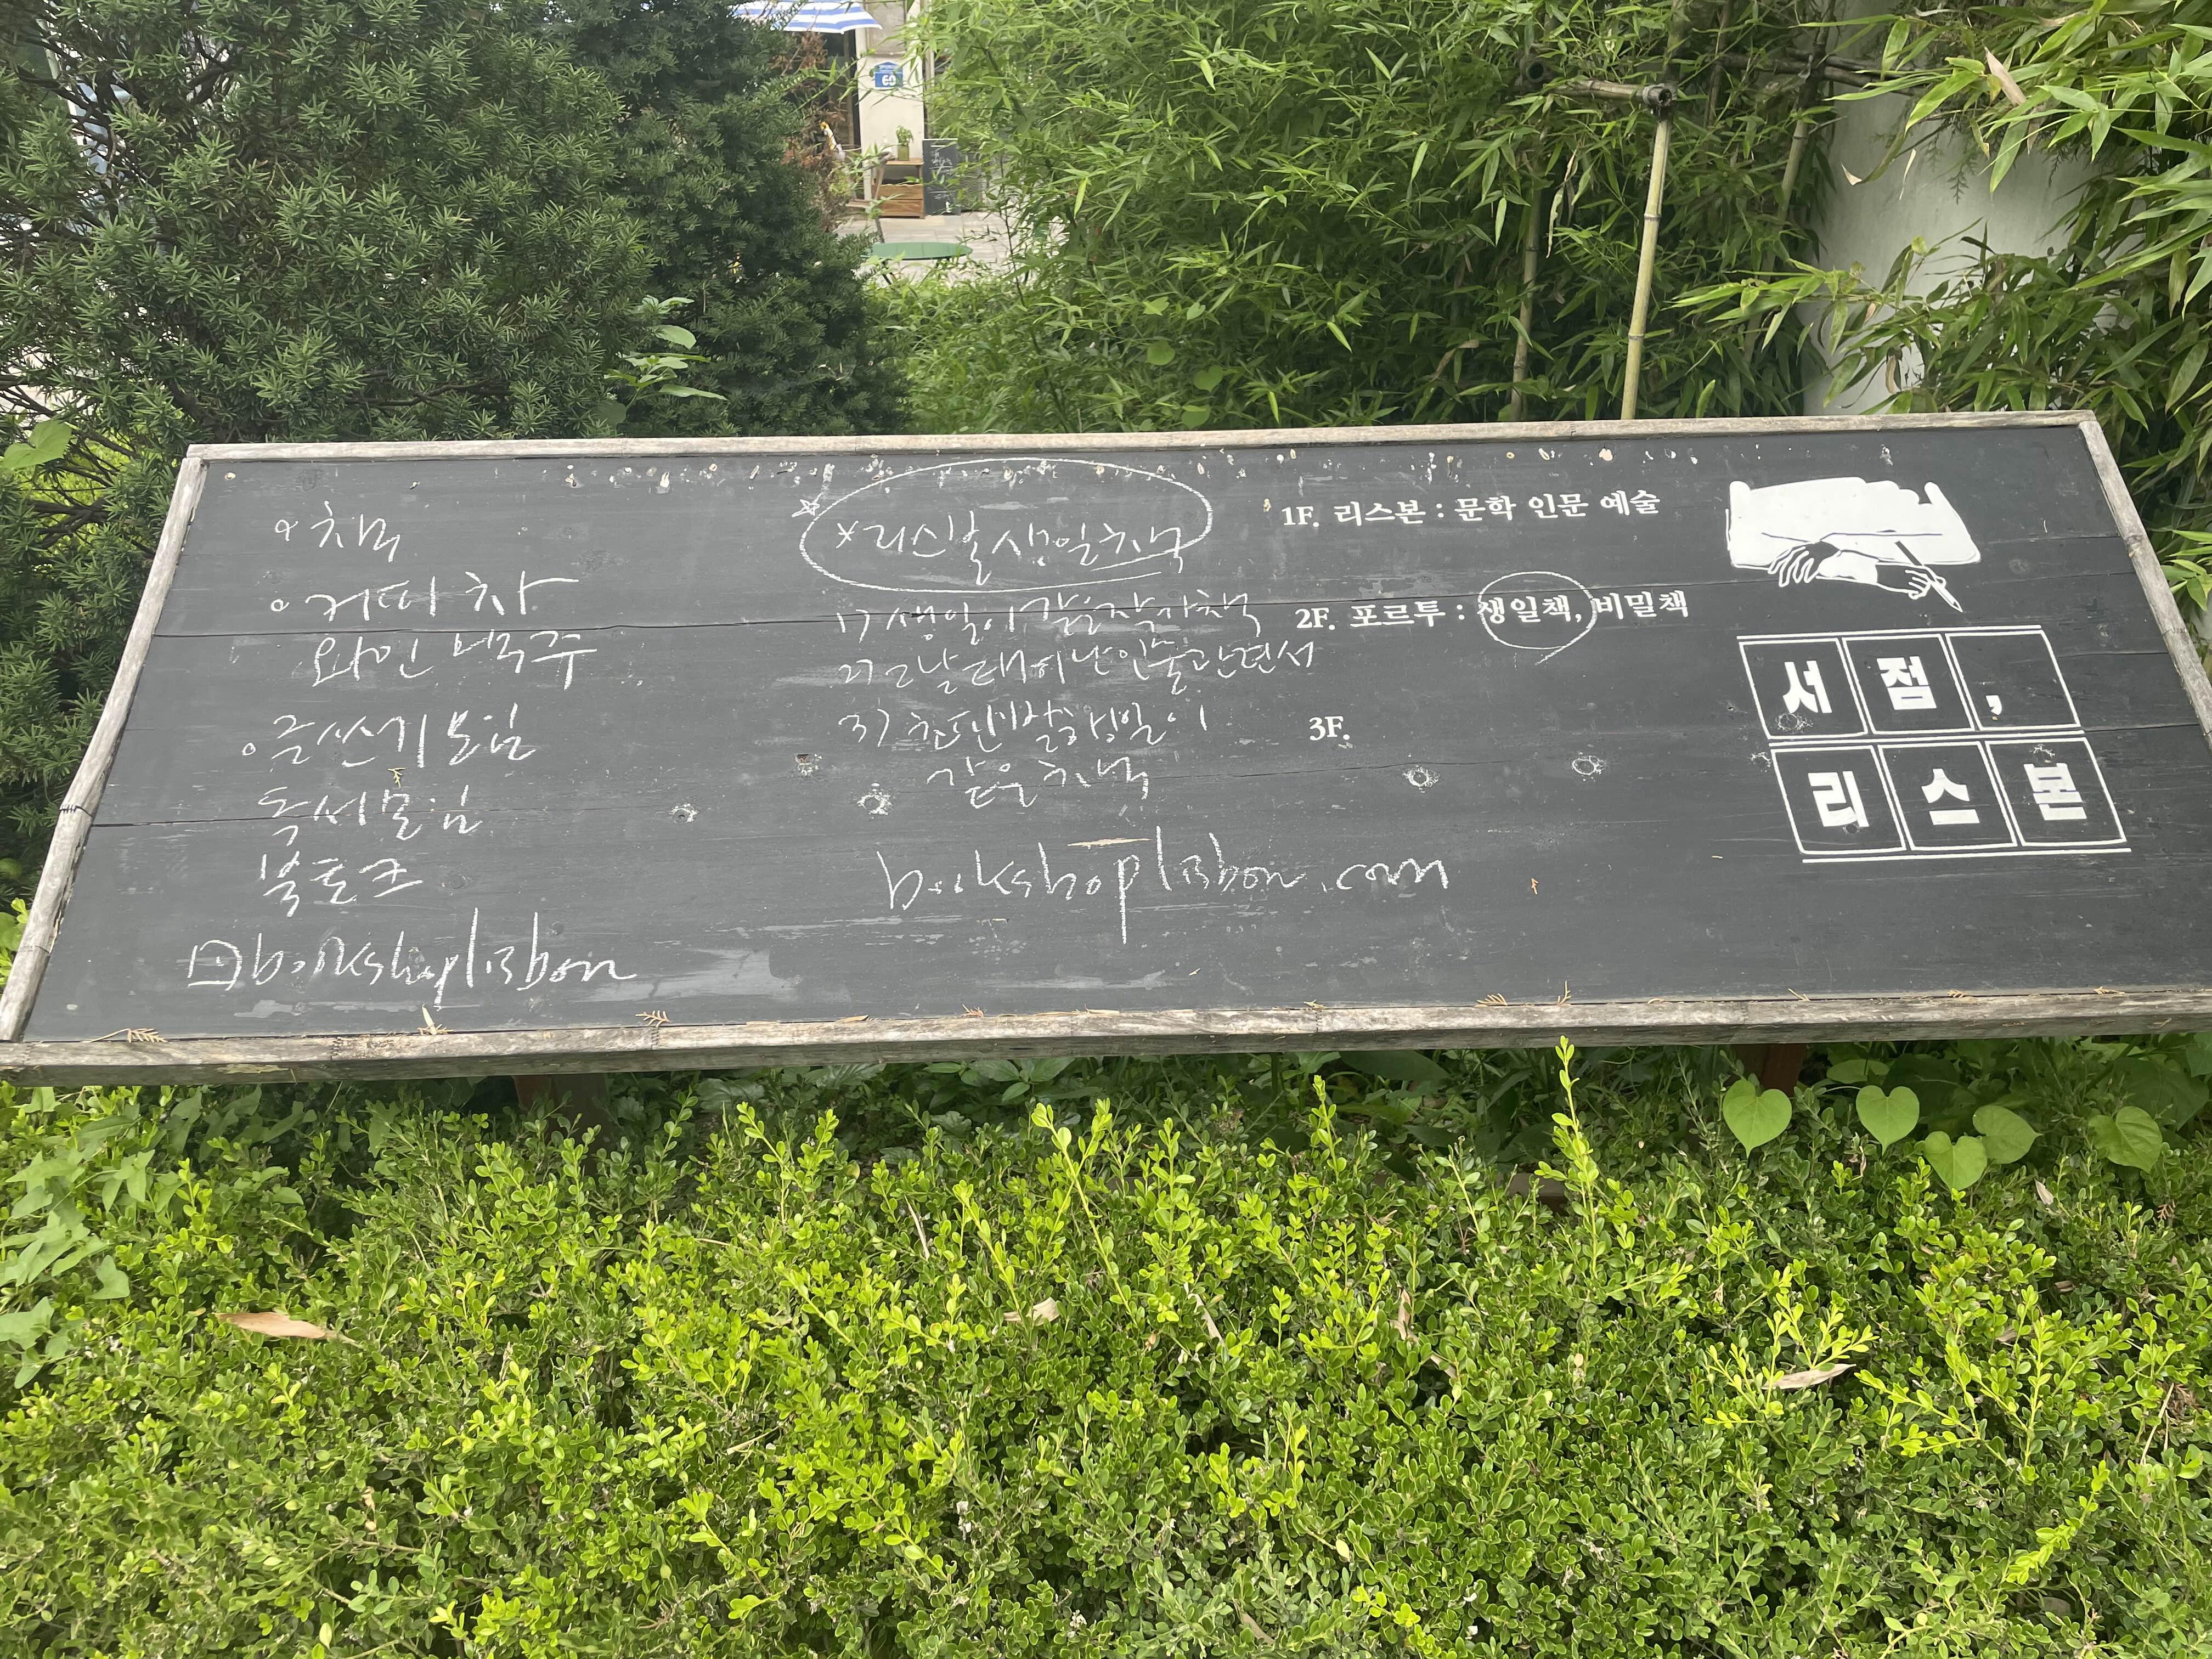 ◦책
◦커피 차
와인 맥주
◦글쓰기 모임
독서모임
북토크
bookshoplisbon
*리스본 생일책
1) 생일이 같은 작가 책
2) 그날 태어난 인물 관련서
3) 초판 발행일이
같은 책
bookshoplisbon.com
1F. 리스본 : 문학 인문 예술
2F. 포르투 : 생일책, 비밀책
3F.
서점,
리스본
60